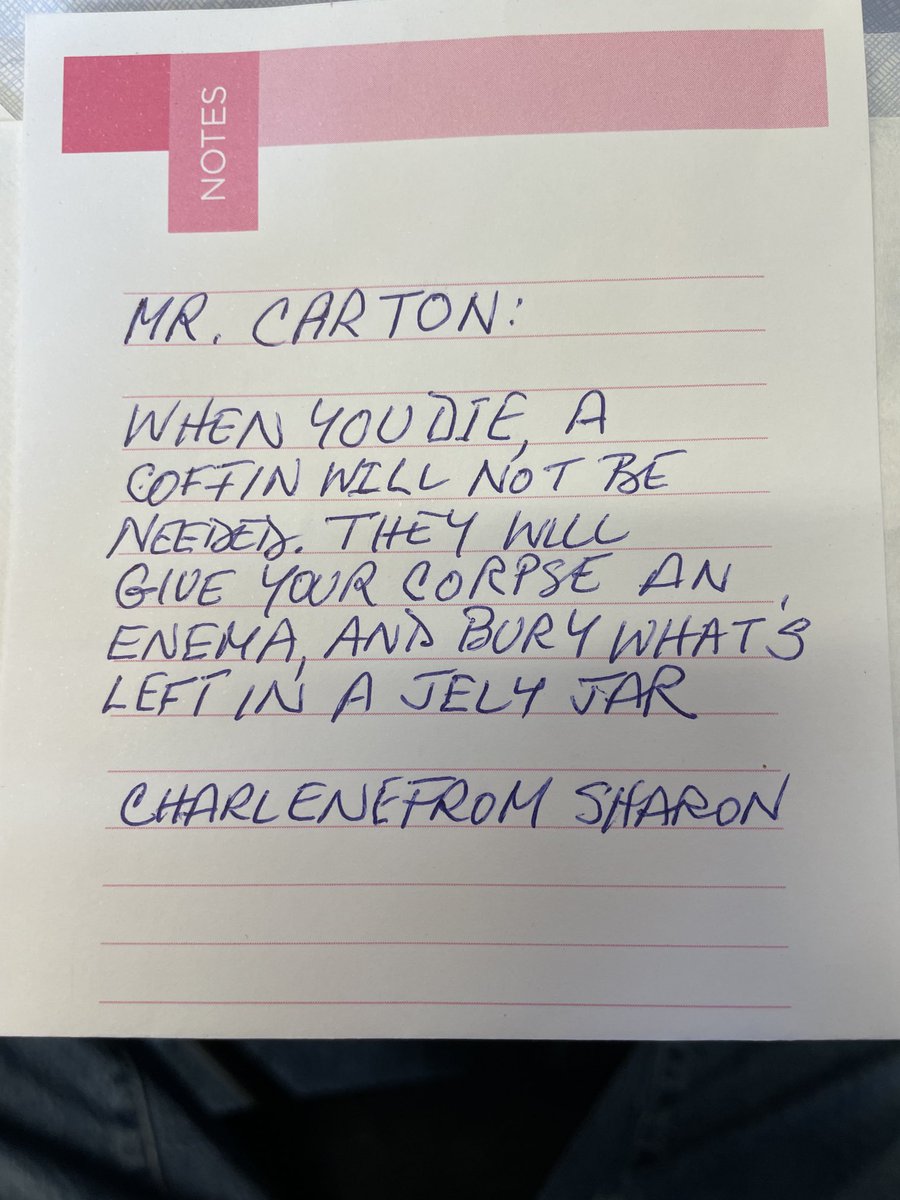 NOTES
MR. CARTON:
WHEN YOU DIE, A
COFFIN WILL NOT BE
NEEDED. THEY WILL
GIVE YOUR CORPSE AN
ENEMA, AND BURY WHAT'S
LEFT IN A JELY JAR
CHARLENE FROM SHARON